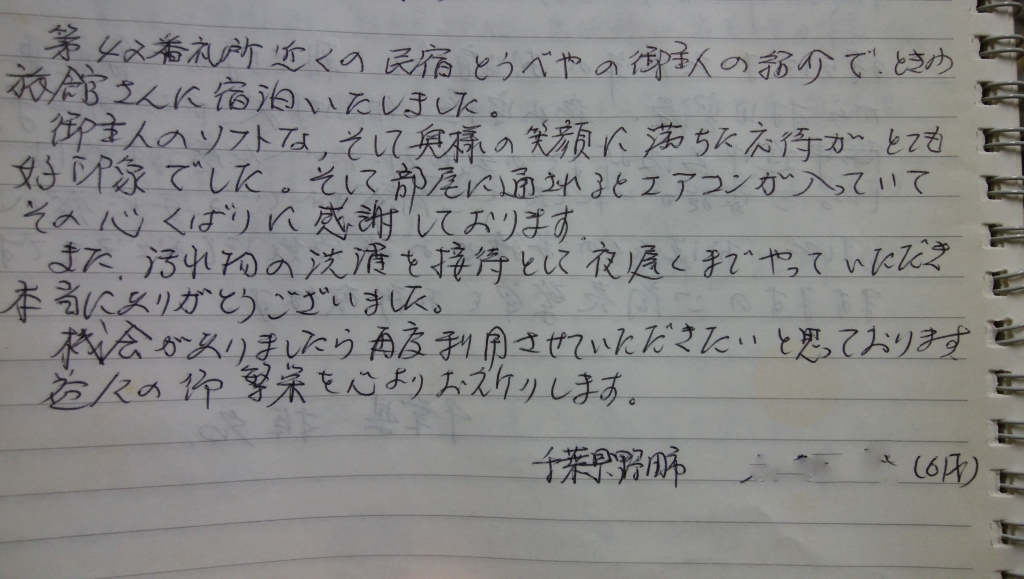 第42番札所近くの民宿とうべやの御主人の紹介で、ときわ
旅館さんに宿泊いたしました。
御主人のソフトな、そして奥様の笑顔に満ちた応待がとても
好印象でした。そして部屋に通されるとエアコンが入っていて
その心くばりに感謝しております。
また、汚れ物の洗濯を接待として夜遅くまでやっていただき
本当にありがとうございました。
機会がありましたら再度利用させていただきたいと思っております
益々の御繁栄を心よりお祈りします。
千葉県野田市 (6才)